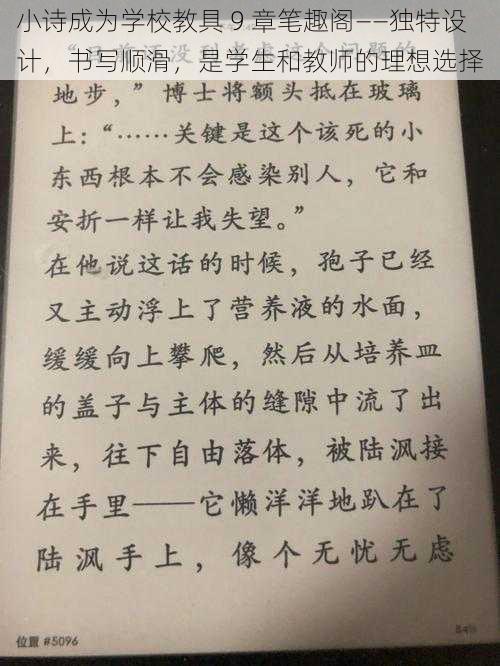 小诗成为学校教具 9 章笔趣阁——独特设
计，书写顺滑，是学生和教师的理想选择
地步，”博士将额头抵在玻璃
上：“……关键是这个该死的小
东西根本不会感染别人，它和
安折一样让我失望。”
在他说这话的时候，孢子已经
又主动浮上了营养液的水面，
缓缓向上攀爬，然后从培养皿
的盖子与主体的缝隙中流了出
来，往下自由落体，被陆沨接
在手里——它懒洋洋地趴在了
陆沨手上，像个无忧无虑
位置 #5096